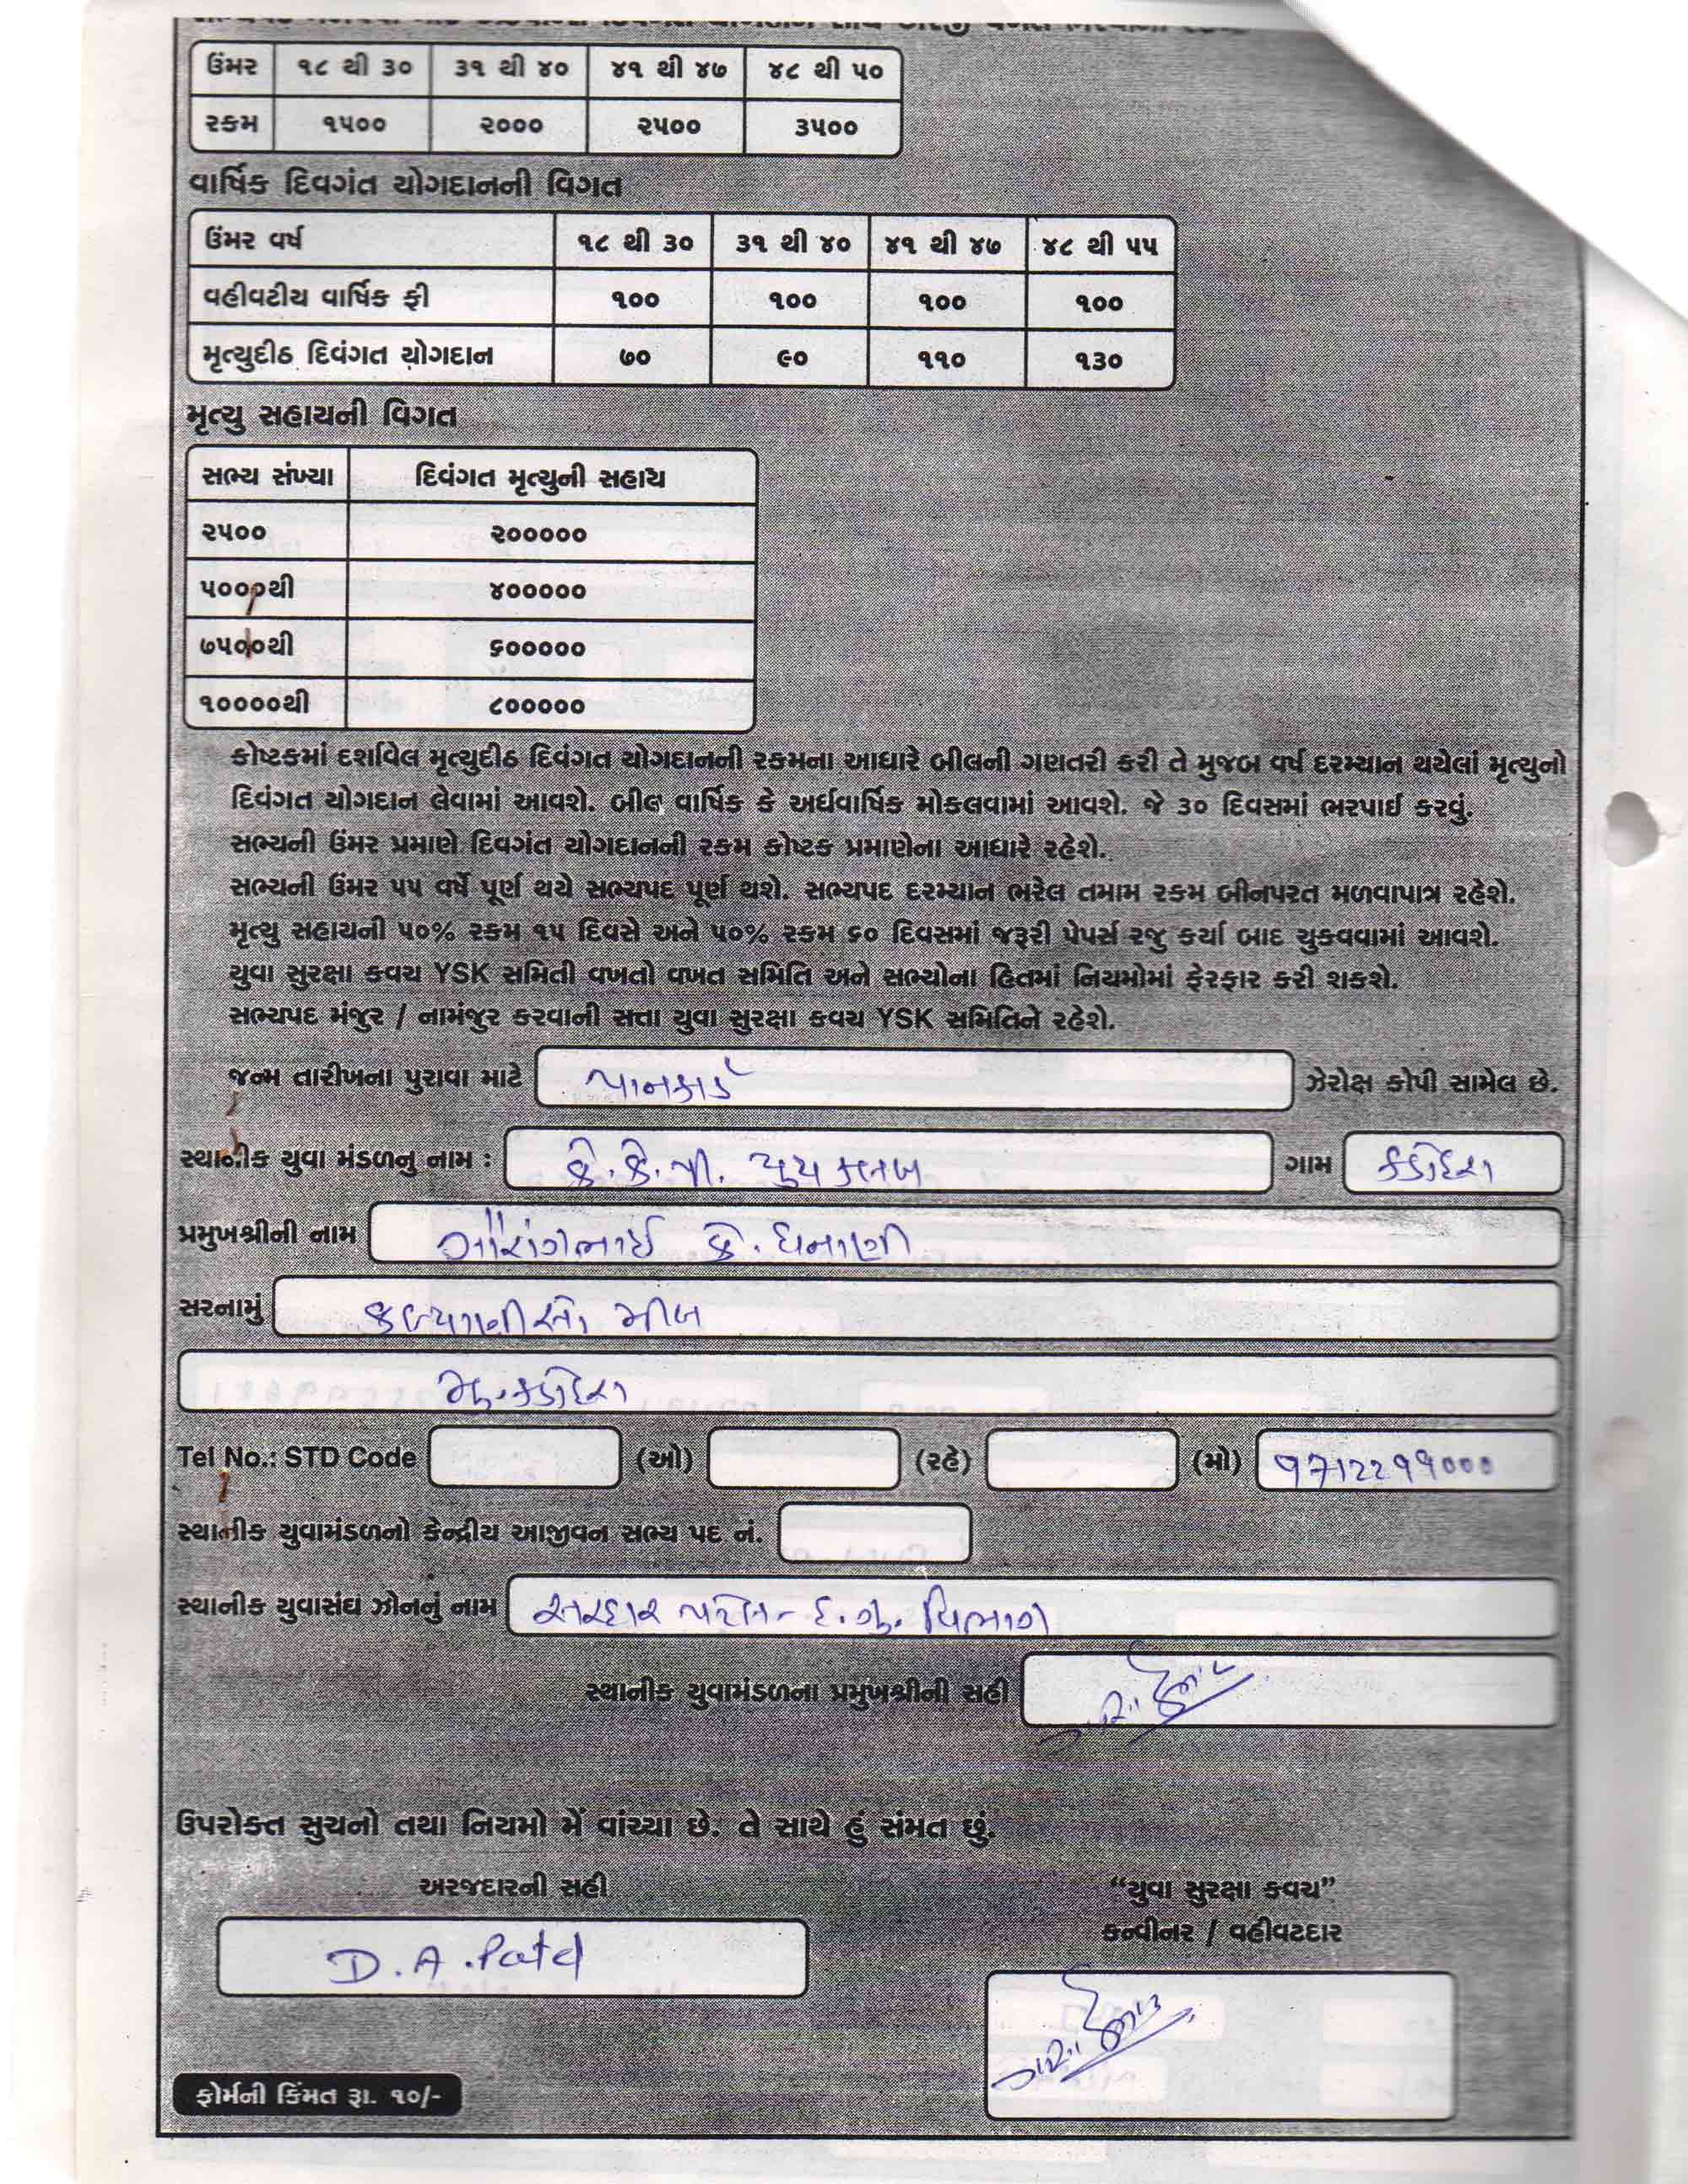 ઉંમર ૧૮ થી ૩૦ ૩૧ થી ૪૦ ૪૧ થી ૪૭ ૪૮ થી ૫૦
રકમ ૧૫૦૦ ૨૦૦૦ ૨૫૦૦ ૩૫૦૦
વાર્ષિક દિવગંત યોગદાનની વિગત
ઉંમર વર્ષ ૧૮ થી ૩૦ ૩૧ થી ૪૦ ૪૧ થી ૪૭ ૪૮ થી ૫૫
વહીવટીય વાર્ષિક ફી ૧૦૦ ૧૦૦ ૧૦૦ ૧૦૦
મૃત્યુદીઠ દિવંગત યોગદાન ૭૦ ૯૦ ૧૧૦ ૧૩૦
મૃત્યુ સહાયની વિગત
સભ્ય સંખ્યા દિવંગત મૃત્યુની સહાય
૨૫૦૦ ૨૦૦૦૦૦
૫૦૦૦થી ૪૦૦૦૦૦
૭૫૦૦થી ૬૦૦૦૦૦
૧૦૦૦૦થી ૮૦૦૦૦૦
કોષ્ટકમાં દર્શાવેલ મૃત્યુદીઠ દિવંગત યોગદાનની રકમના આધારે બીલની ગણતરી કરી તે મુજબ વર્ષ દરમ્યાન થયેલાં મૃત્યુનો
દિવંગત યોગદાન લેવામાં આવશે. બીલ વાર્ષિક કે અર્ધવાર્ષિક મોકલવામાં આવશે. જે ૩૦ દિવસમાં ભરપાઈ કરવું.
સભ્યની ઉંમર પ્રમાણે દિવગંત યોગદાનની રકમ કોષ્ટક પ્રમાણેના આધારે રહેશે.
સભ્યની ઉંમર ૫૫ વર્ષે પૂર્ણ થયે સભ્યપદ પૂર્ણ થશે. સભ્યપદ દરમ્યાન ભરેલ તમામ રકમ બીનપરત મળવાપાત્ર રહેશે.
મૃત્યુ સહાયની ૫૦% રકમ ૧૫ દિવસે અને ૫૦% રકમ ૬૦ દિવસમાં જરૂરી પેપર્સ રજુ કર્યા બાદ ચુકવવામાં આવશે.
યુવા સુરક્ષા કવચ YSK સમિતી વખતો વખત સમિતિ અને સભ્યોના હિતમાં નિયમોમાં ફેરફાર કરી શકશે.
સભ્યપદ મંજુર / નામંજુર કરવાની સત્તા યુવા સુરક્ષા કવચ YSK સમિતિને રહેશે.
જન્મ તારીખના પુરાવા માટે પાનકાર્ડ ઝેરોક્ષ કોપી સામેલ છે.
સ્થાનીક યુવા મંડળનુ નામ : કે.કે.પી. યુથ કલબ ગામ કડોદરા
પ્રમુખશ્રીની નામ ગૌરાંગભાઈ કે. ધનાણી
સરનામું
મુ.કડોદરા
Tel No.: STD Code (ઓ) (રહે) (મો) 9712299000
સ્થાનીક યુવામંડળનો કેન્દ્રીય આજીવન સભ્ય પદ નં.
સ્થાનીક યુવાસંઘ ઝોનનું નામ સરદાર પટેલ - દ.ગુ. વિભાગ
સ્થાનીક યુવામંડળના પ્રમુખશ્રીની સહી
ઉપરોક્ત સુચનો તથા નિયમો મેં વાંચ્યા છે. તે સાથે હું સંમત છું.
અરજદારની સહી "યુવા સુરક્ષા કવચ"
કન્વીનર / વહીવટદાર
D.A.Patel
ફોર્મની કિંમત રૂા. ૧૦/-